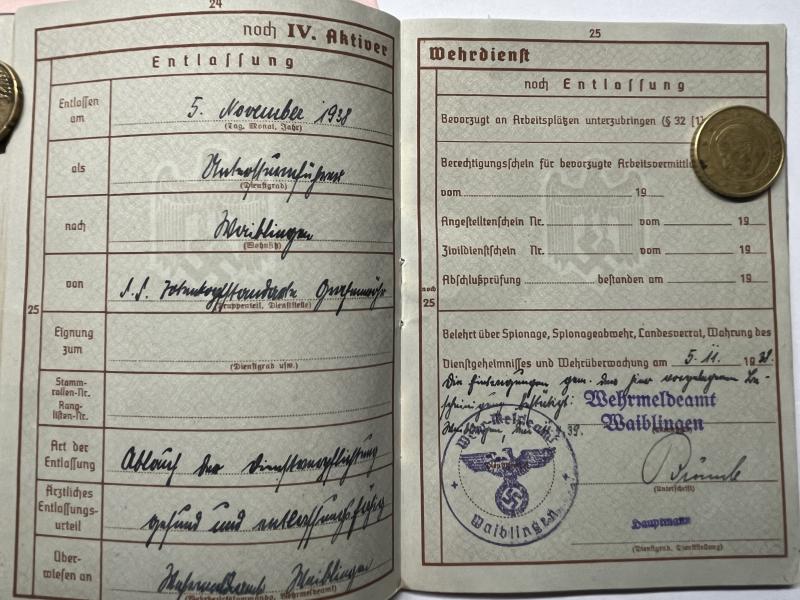 24
noch IV. Aktiver
Entlassung
Entlassen am 5. November 1938
(Tag, Monat, Jahr)
als Unterscharführer
(Dienstgrad)
nach Waiblingen
(Wohnsitz)
von S.S. Totenkopfstandarte
(Truppenteil, Dienststelle)
25
Eignung zum
(Dienstgrad usw.)
Stamm-
rollen-Nr.
Rang-
listen-Nr.
Art der Entlassung Ablauf der Dienstverpflichtung
Ärztliches
Entlassungs-
urteil gesund und entlassungsfähig
Über-
wiesen an Wehrmeldeamt Waiblingen
(Wehrbezirkskommando, Wehrmeldeamt)
25
Wehrdienst
noch Entlassung
Bevorzugt an Arbeitsplätzen unterzubringen (§ 32 [1]
Berechtigungsschein für bevorzugte Arbeitsvermittl
vom 19
Angestelltenschein Nr. vom 19
Zivildienstschein Nr. vom 19
Abschlußprüfung bestanden am 19
noch
25
Belehrt über Spionage, Spionageabwehr, Landesverrat, Wahrung des
Dienstgeheimnisses und Wehrüberwachung am 5. 11. 1938.
Die Eintragungen gem. der hier vorgelegten Be-
scheinigung bestätigt:
Wehrmeldeamt
Waiblingen
Waiblingen, 39.
Wehrmeldeamt
Waiblingen
(Unterschrift)
Hauptmann
(Dienstgrad, Dienststellung)